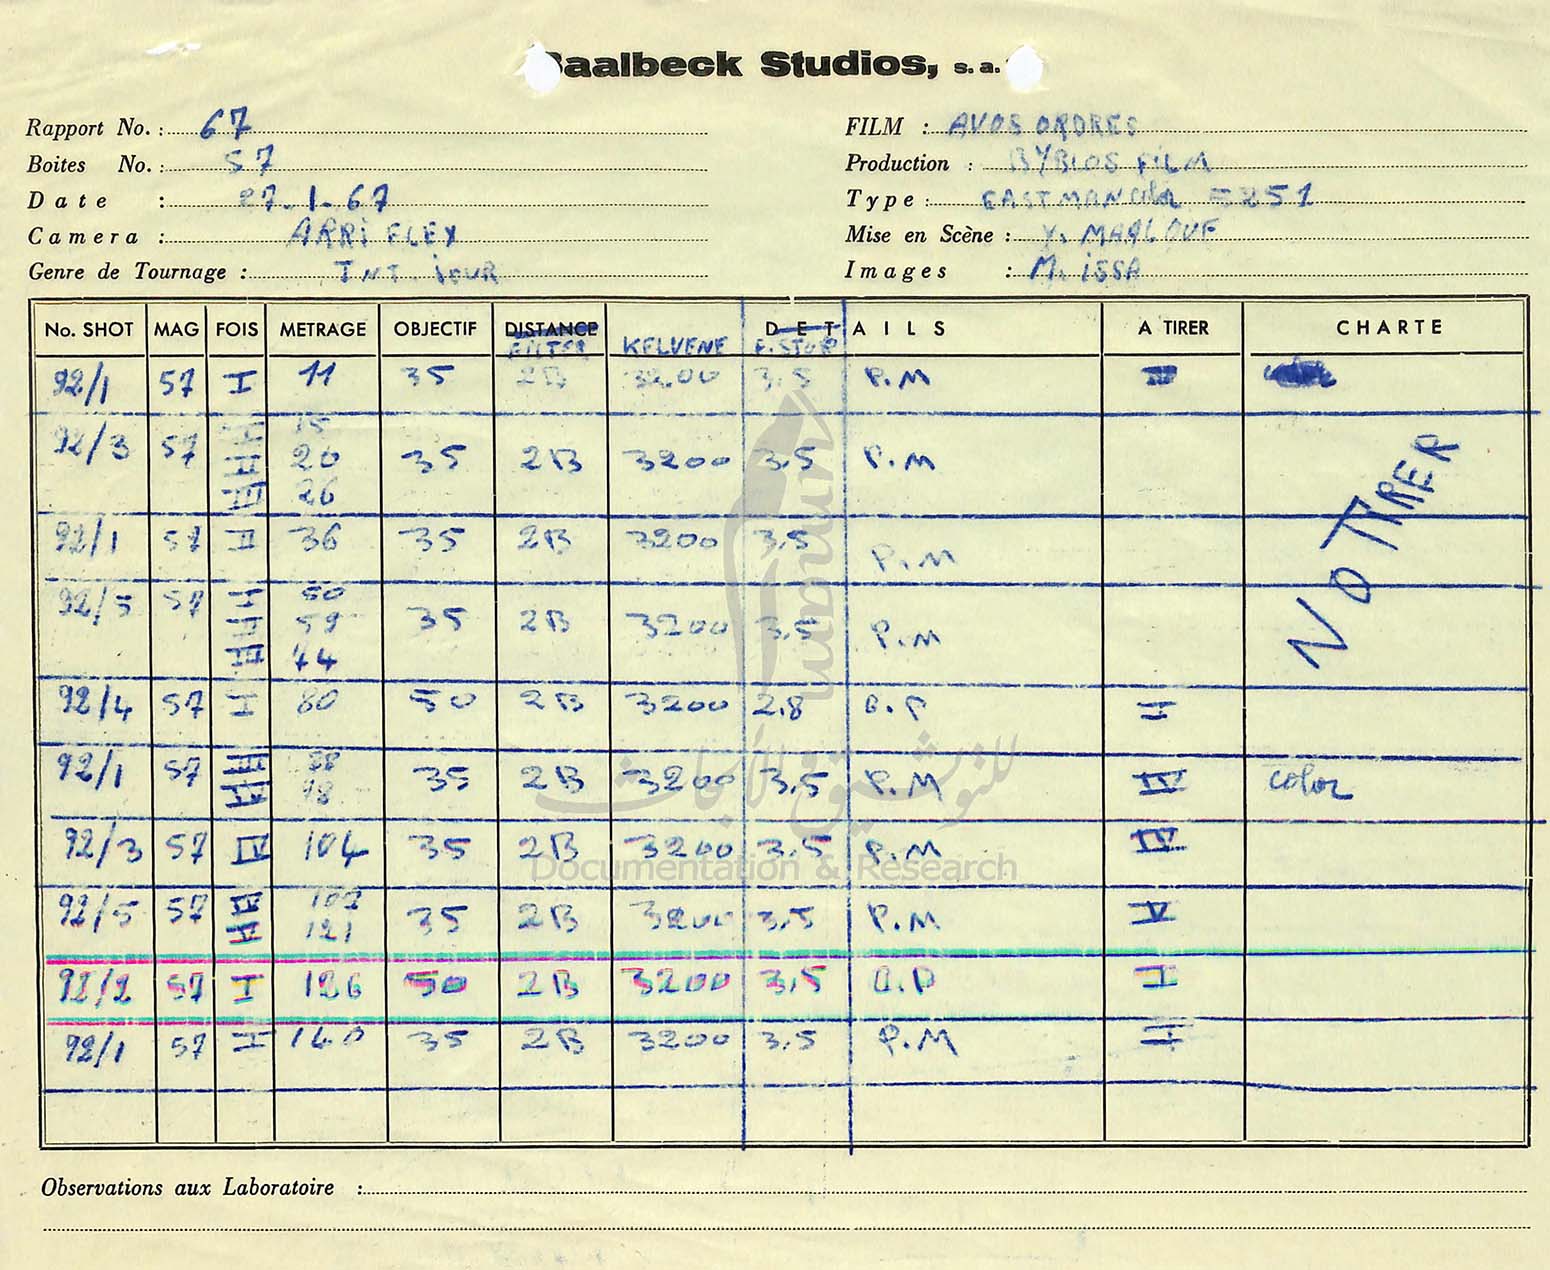 Baalbeck Studios, s. a.
Rapport No. : 67
Boites No. : 57
Date : 27-1-67
Camera : ARRI FLEX
Genre de Tournage : INT. iOUR
FILM : AVOS ORDRES
Production : BYBLOS FILM
Type : EASTMANColor 5251
Mise en Scène : Y. MAALOUF
Images : M. iSSA
No. SHOT MAG FOIS METRAGE OBJECTIF DISTANCE DETAILS A TIRER CHARTE
FILTER KELVENE F. STOP
92/1 57 I 11 35 2B 3200 3.5 P.M
92/3 57 I 15
II 20 35 2B 3200 3.5 P.M
III 26
92/1 57 II 36 35 2B 3200 3.5 P.M
92/5 57 I 50
II 59 35 2B 3200 3.5 P.M
III
92/4 57 I 80 50 2B 3200 2.8 G.P I
92/1 57 III 35 2B 3200 3.5 P.M IV color
IV
92/3 57 IV 104 35 2B 3200 3.5 P.M IV
92/5 57 IV 35 2B 3200 3.5 P.M V
V 121
92/2 57 I 126 50 2B 3200 3.5 G.P I
92/1 57 140 35 2B 3200 3.5 P.M
NO TIRER
umam
للتوثيق والأبحاث
Documentation & Research
Observations aux Laboratoire :